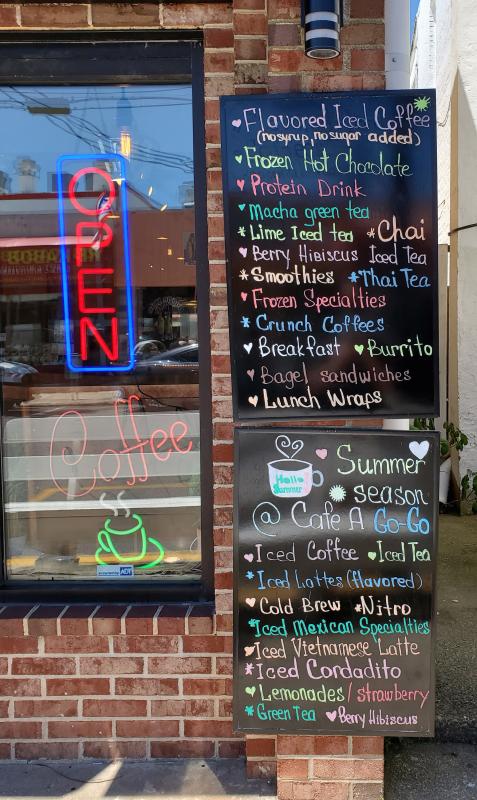 OPEN
Coffee
ADT
Flavored Iced Coffee
(no syrup, no sugar added)
Frozen Hot Chocolate
Protein Drink
Macha green tea
Lime Iced tea * Chai
Berry Hibiscus Iced Tea
* Smoothies * Thai Tea
Frozen Specialties
* Crunch Coffees
Breakfast ♥ Burrito
Bagel sandwiches
Lunch Wraps
Hello Summer
Summer
season
@ Cafe A Go-Go
Iced Coffee ♥ Iced Tea
* Iced Lattes (flavored)
♥ Cold Brew * Nitro
* Iced Mexican Specialties
Iced Vietnamese Latte
* Iced Cordadito
♥ Lemonades/strawberry
* Green Tea ♥ Berry Hibiscus